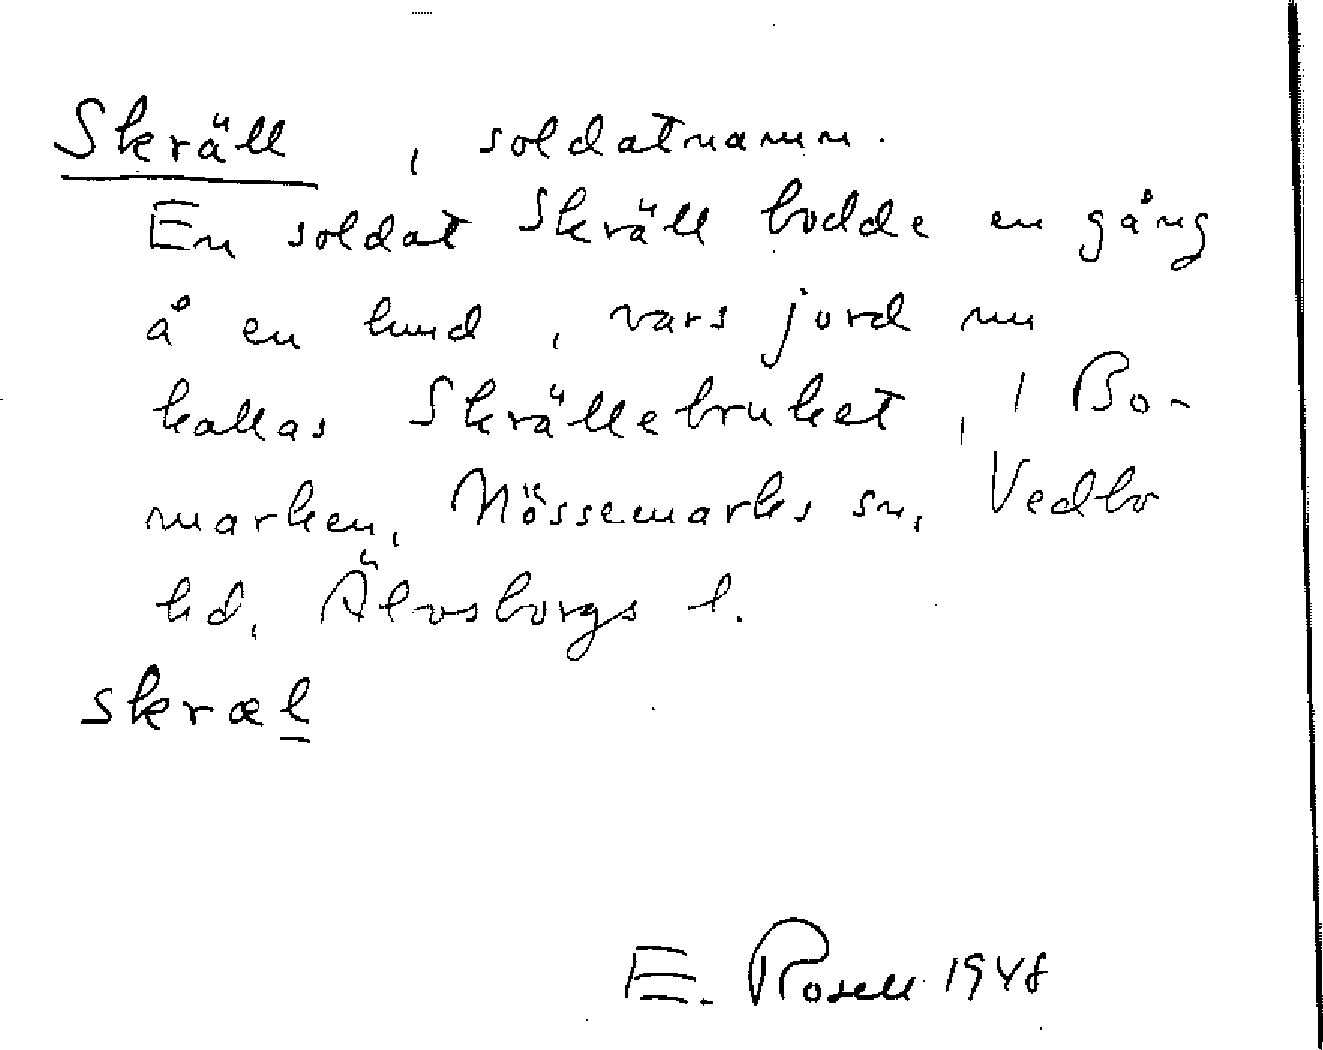 Skräll, soldatnamn.
En soldat Skräll bodde en gång
å en lund, vars jord nu
kallas Skrällebruket, i Bo-
marken, Nössemarks sn, Vedbo
hd, Älvsborgs l.
skræl
E. Rosell 1948